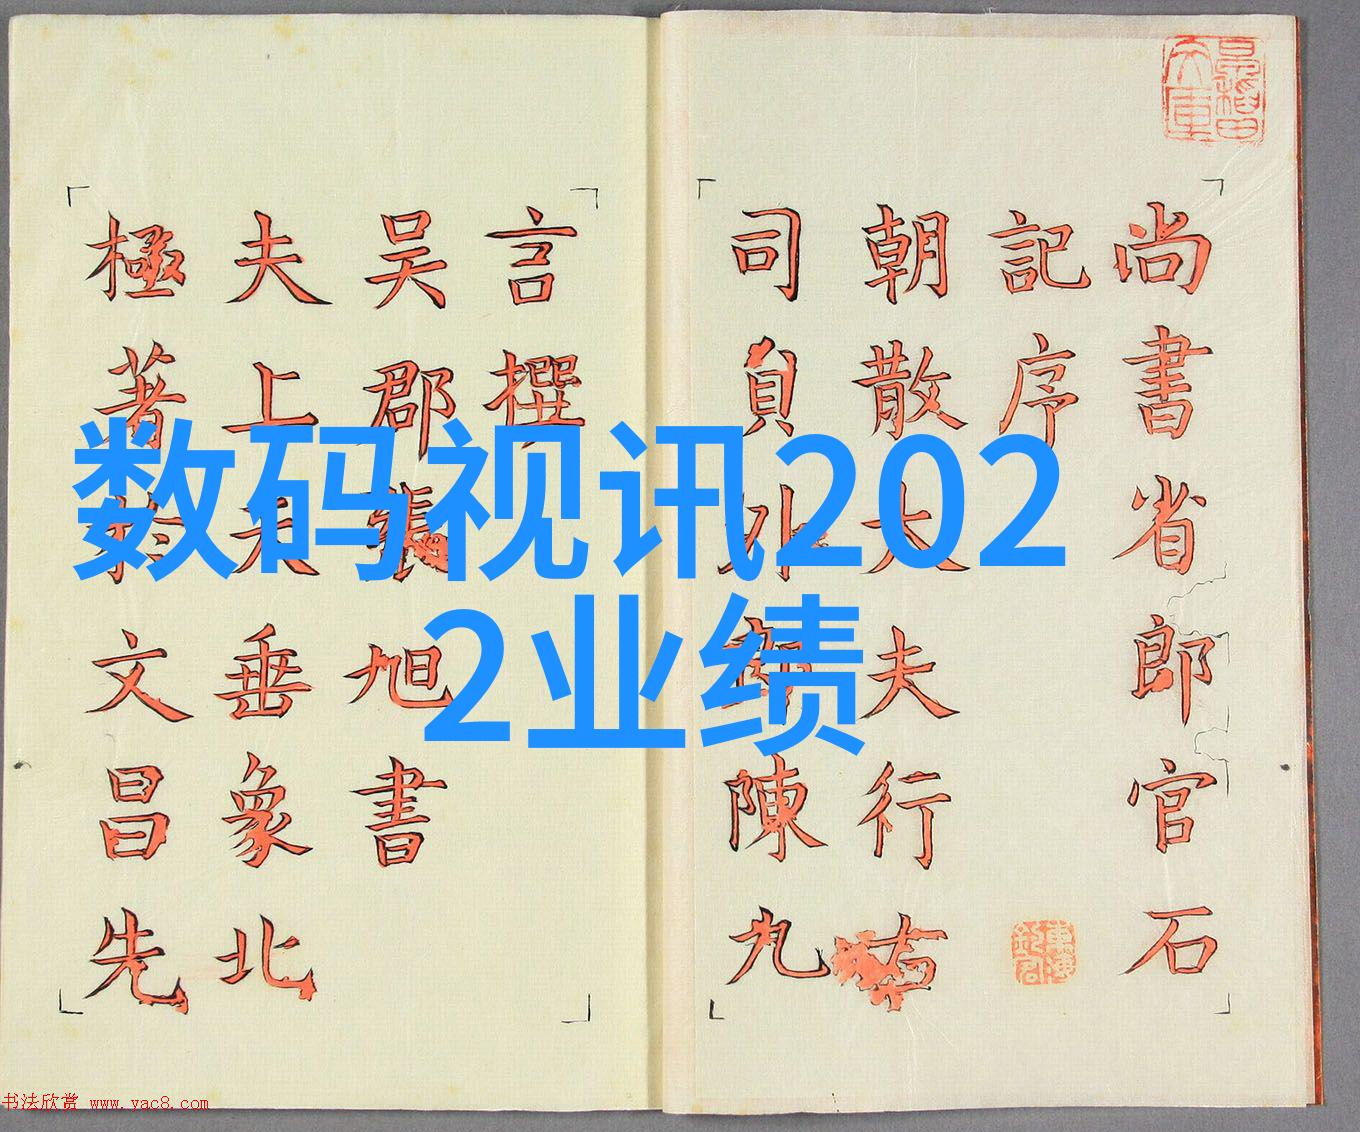 尚書省郎官石
記序
朝散大夫行右
司員外郎陳九
言撰
吴郡張旭書
夫上天垂象北
極著於文昌先
数码视讯202
2业绩
书法欣赏 www.yac8.com